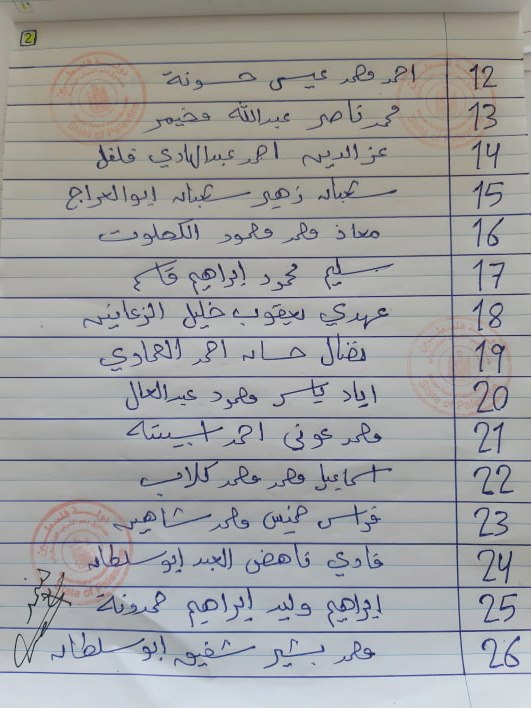 2
12 احمد محمد عيسى حسونة
13 محمد ناصر عبدالله مخيمر
14 عزالدين احمد عبدالهادي فلفل
15 شعبان زهير شعبان ابوالعراج
16 معاذ محمد محمود الكحلوت
17 سليم محمود إبراهيم قاسم
18 عهدي يعقوب خليل الزعانين
19 نضال حسان احمد الحمادي
20 اياد ياسر محمود عبدالعال
21 محمد عوني احمد اسبيته
22 اسماعيل محمد محمد كلاب
23 فراس خميس محمد شاهين
24 فادي ناهض العبد ابوسلطان
25 إبراهيم وليد إبراهيم حمدونة
26 محمد بشير شفيق ابوسلطان
State of Palestine